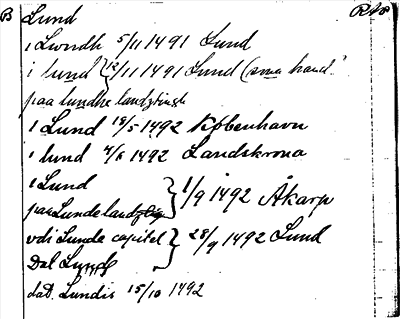 B Lund RAo
i Lwndh 5/11 1491 Lund
i lund } 12/11 1491 Lund (sma hand.
paa lundhe landztingh
i Lund 18/5 1492 København
i lund 4/6 1492 Landskrona
i Lund
paa Lunde landztig } 1/9 1492 Åkarp
vdi Lunde capitel } 28/9 1492 Lund
Dat Lund
dat. Lundis 15/10 1492